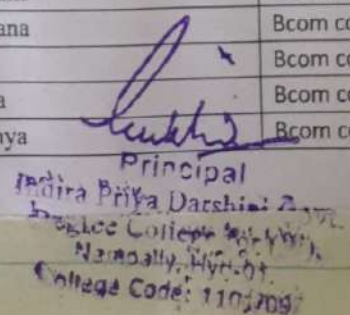 ana Bcom co
Bcom co
a Bcom co
aya Bcom co
Principal
Indira Priya Darshini Govt.
Degree College
Nampally, Hyd-01.
College Code: 1101